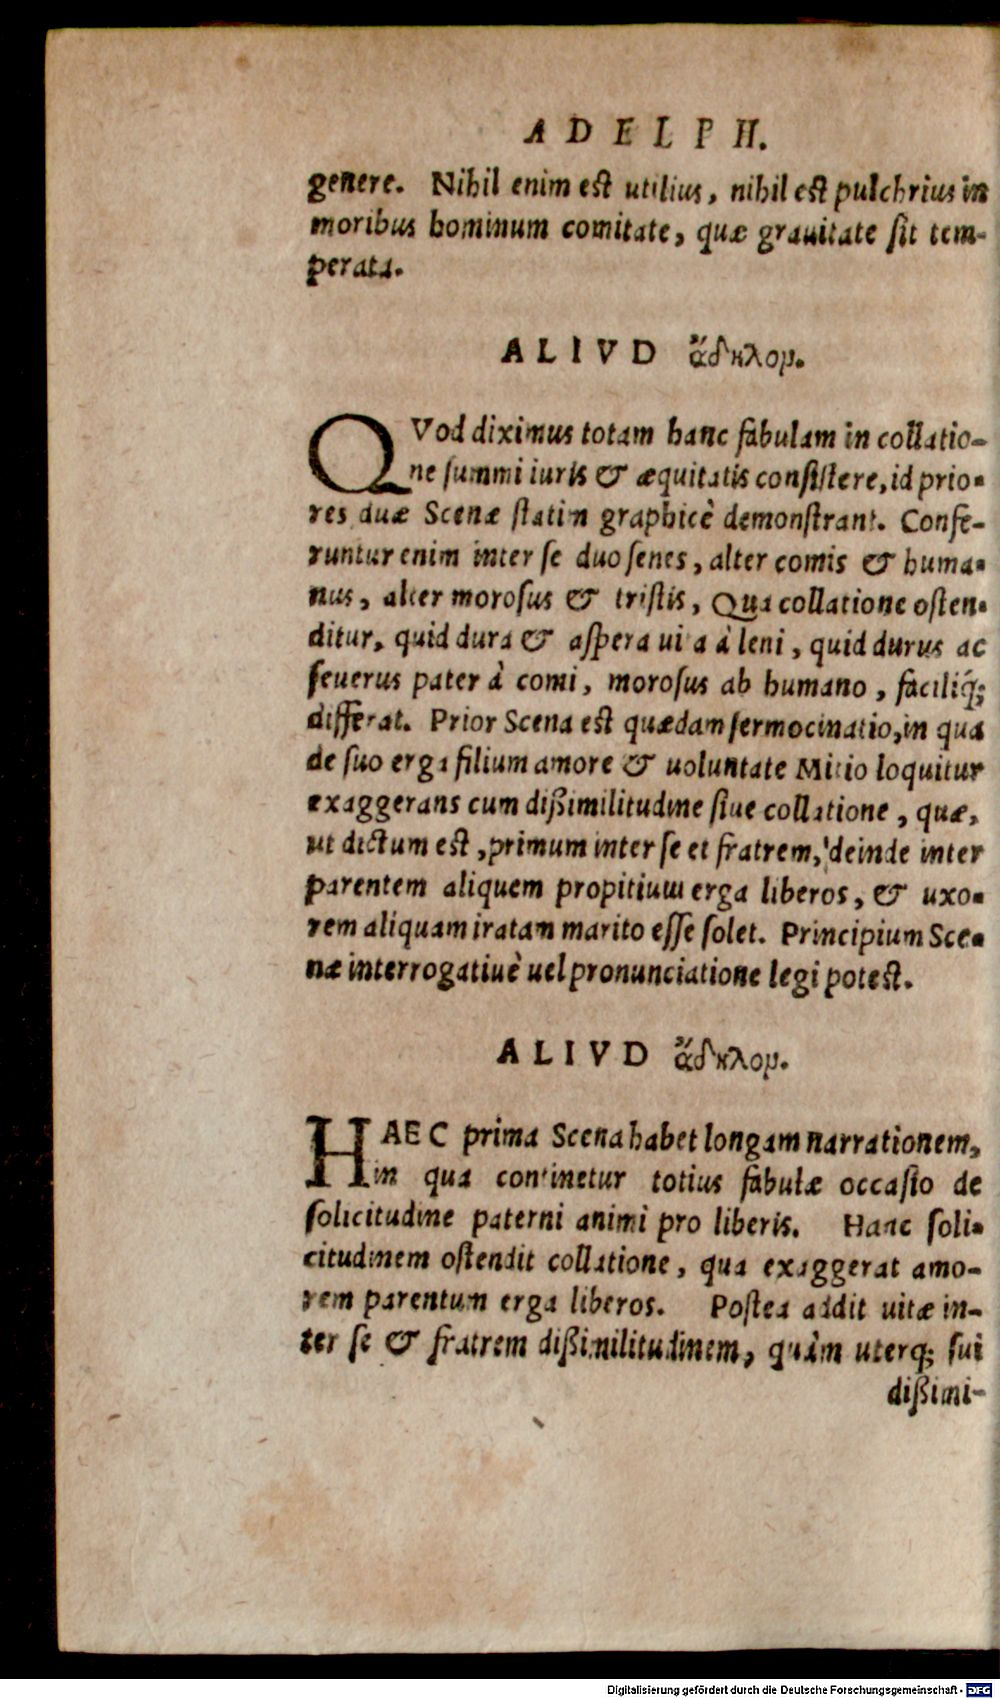 ADELPH.
genere. Nihil enim est utilius, nihil est pulchrius in
moribus hominum comitate, quæ grauitate sit tem-
perata.
ALIVD ἄδηλομ.
QVod diximus totam hanc fabulam in collatio-
ne summi iuris & æquitatis consistere, id prio-
res duæ Scenæ statim graphicè demonstrant. Confe-
runtur enim inter se duo senes, alter comis & huma-
nus, alter morosus & tristis, Qua collatione osten-
ditur, quid dura & aspera uita à leni, quid durus ac
seuerus pater à comi, morosus ab humano, faciliq́;
differat. Prior Scena est quædam sermocinatio, in qua
de suo erga filium amore & uoluntate Mitio loquitur
exaggerans cum dißimilitudine siue collatione, quæ,
ut dictum est, primum inter se et fratrem, deinde inter
parentem aliquem propitium erga liberos, & uxo-
rem aliquam iratam marito esse solet. Principium Sce-
næ interrogatiuè uel pronunciatione legi potest.
ALIVD ἄδηλομ.
HAEC prima Scena habet longam narrationem,
in qua continetur totius fabulæ occasio de
solicitudine paterni animi pro liberis. Hanc soli-
citudinem ostendit collatione, qua exaggerat amo-
rem parentum erga liberos. Postea addit uitæ in-
ter se & fratrem dißimilitudinem, quàm uterq; sui
dißimi-
Digitalisierung gefördert durch die Deutsche Forschungsgemeinschaft - DFG